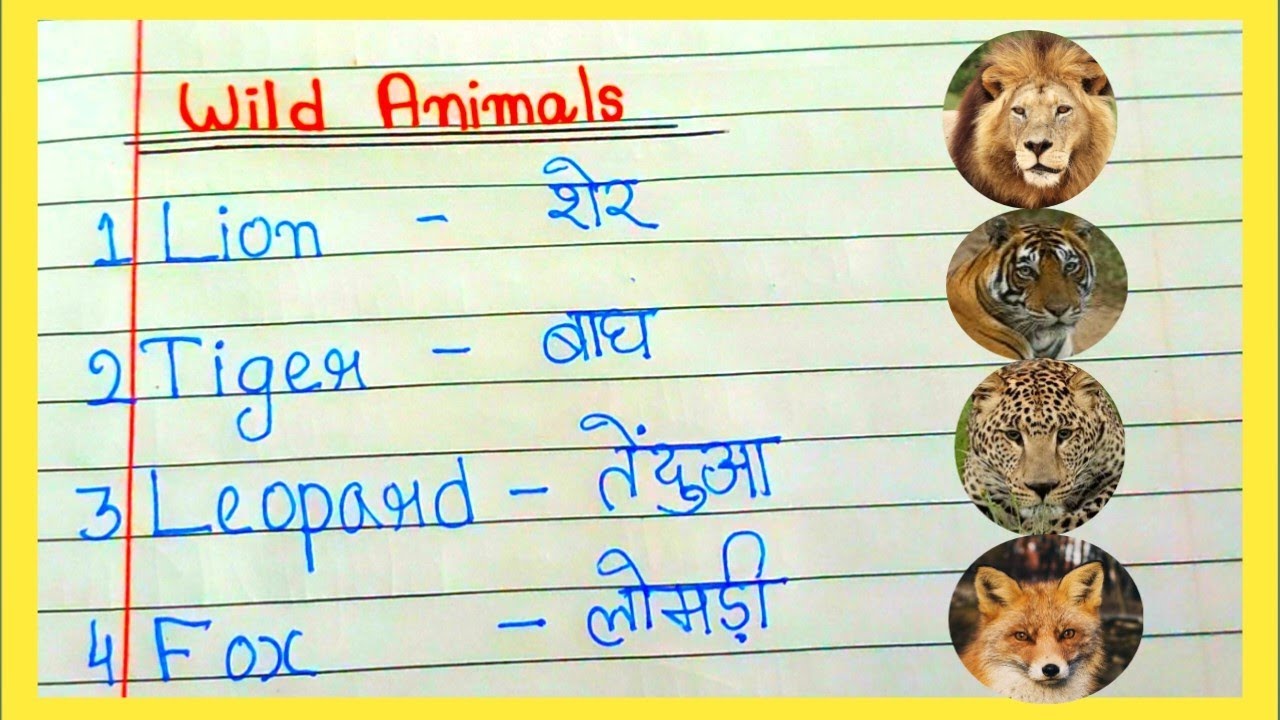 Wild Animals
1 Lion - शेर
2 Tiger - बाघ
3 Leopard - तेंदुआ
4 Fox - लोमड़ी